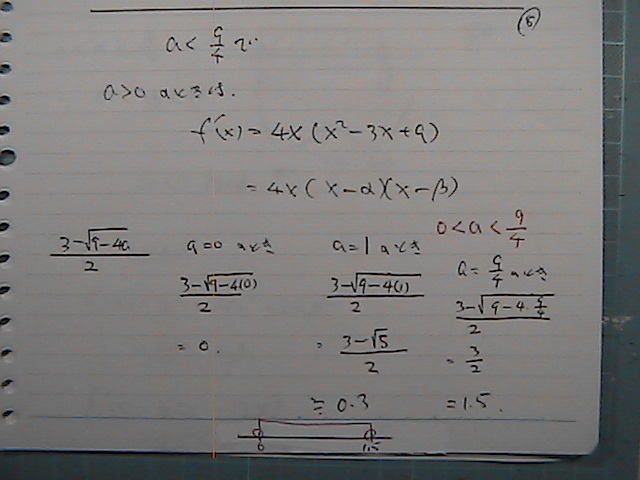 ⑤
a < 9/4 で
a>0 のときは.
f'(x) = 4x(x²-3x+a)
= 4x(x-α)(x-β)
0<a<9/4
(3-√(9-4a))/2
a=0 のとき
(3-√(9-4(0)))/2
= 0.
a=1 のとき
(3-√(9-4(1)))/2
= (3-√5)/2
≒ 0.3
a=9/4 のとき
(3-√(9-4·9/4))/2
= 3/2
= 1.5.
0 1.5